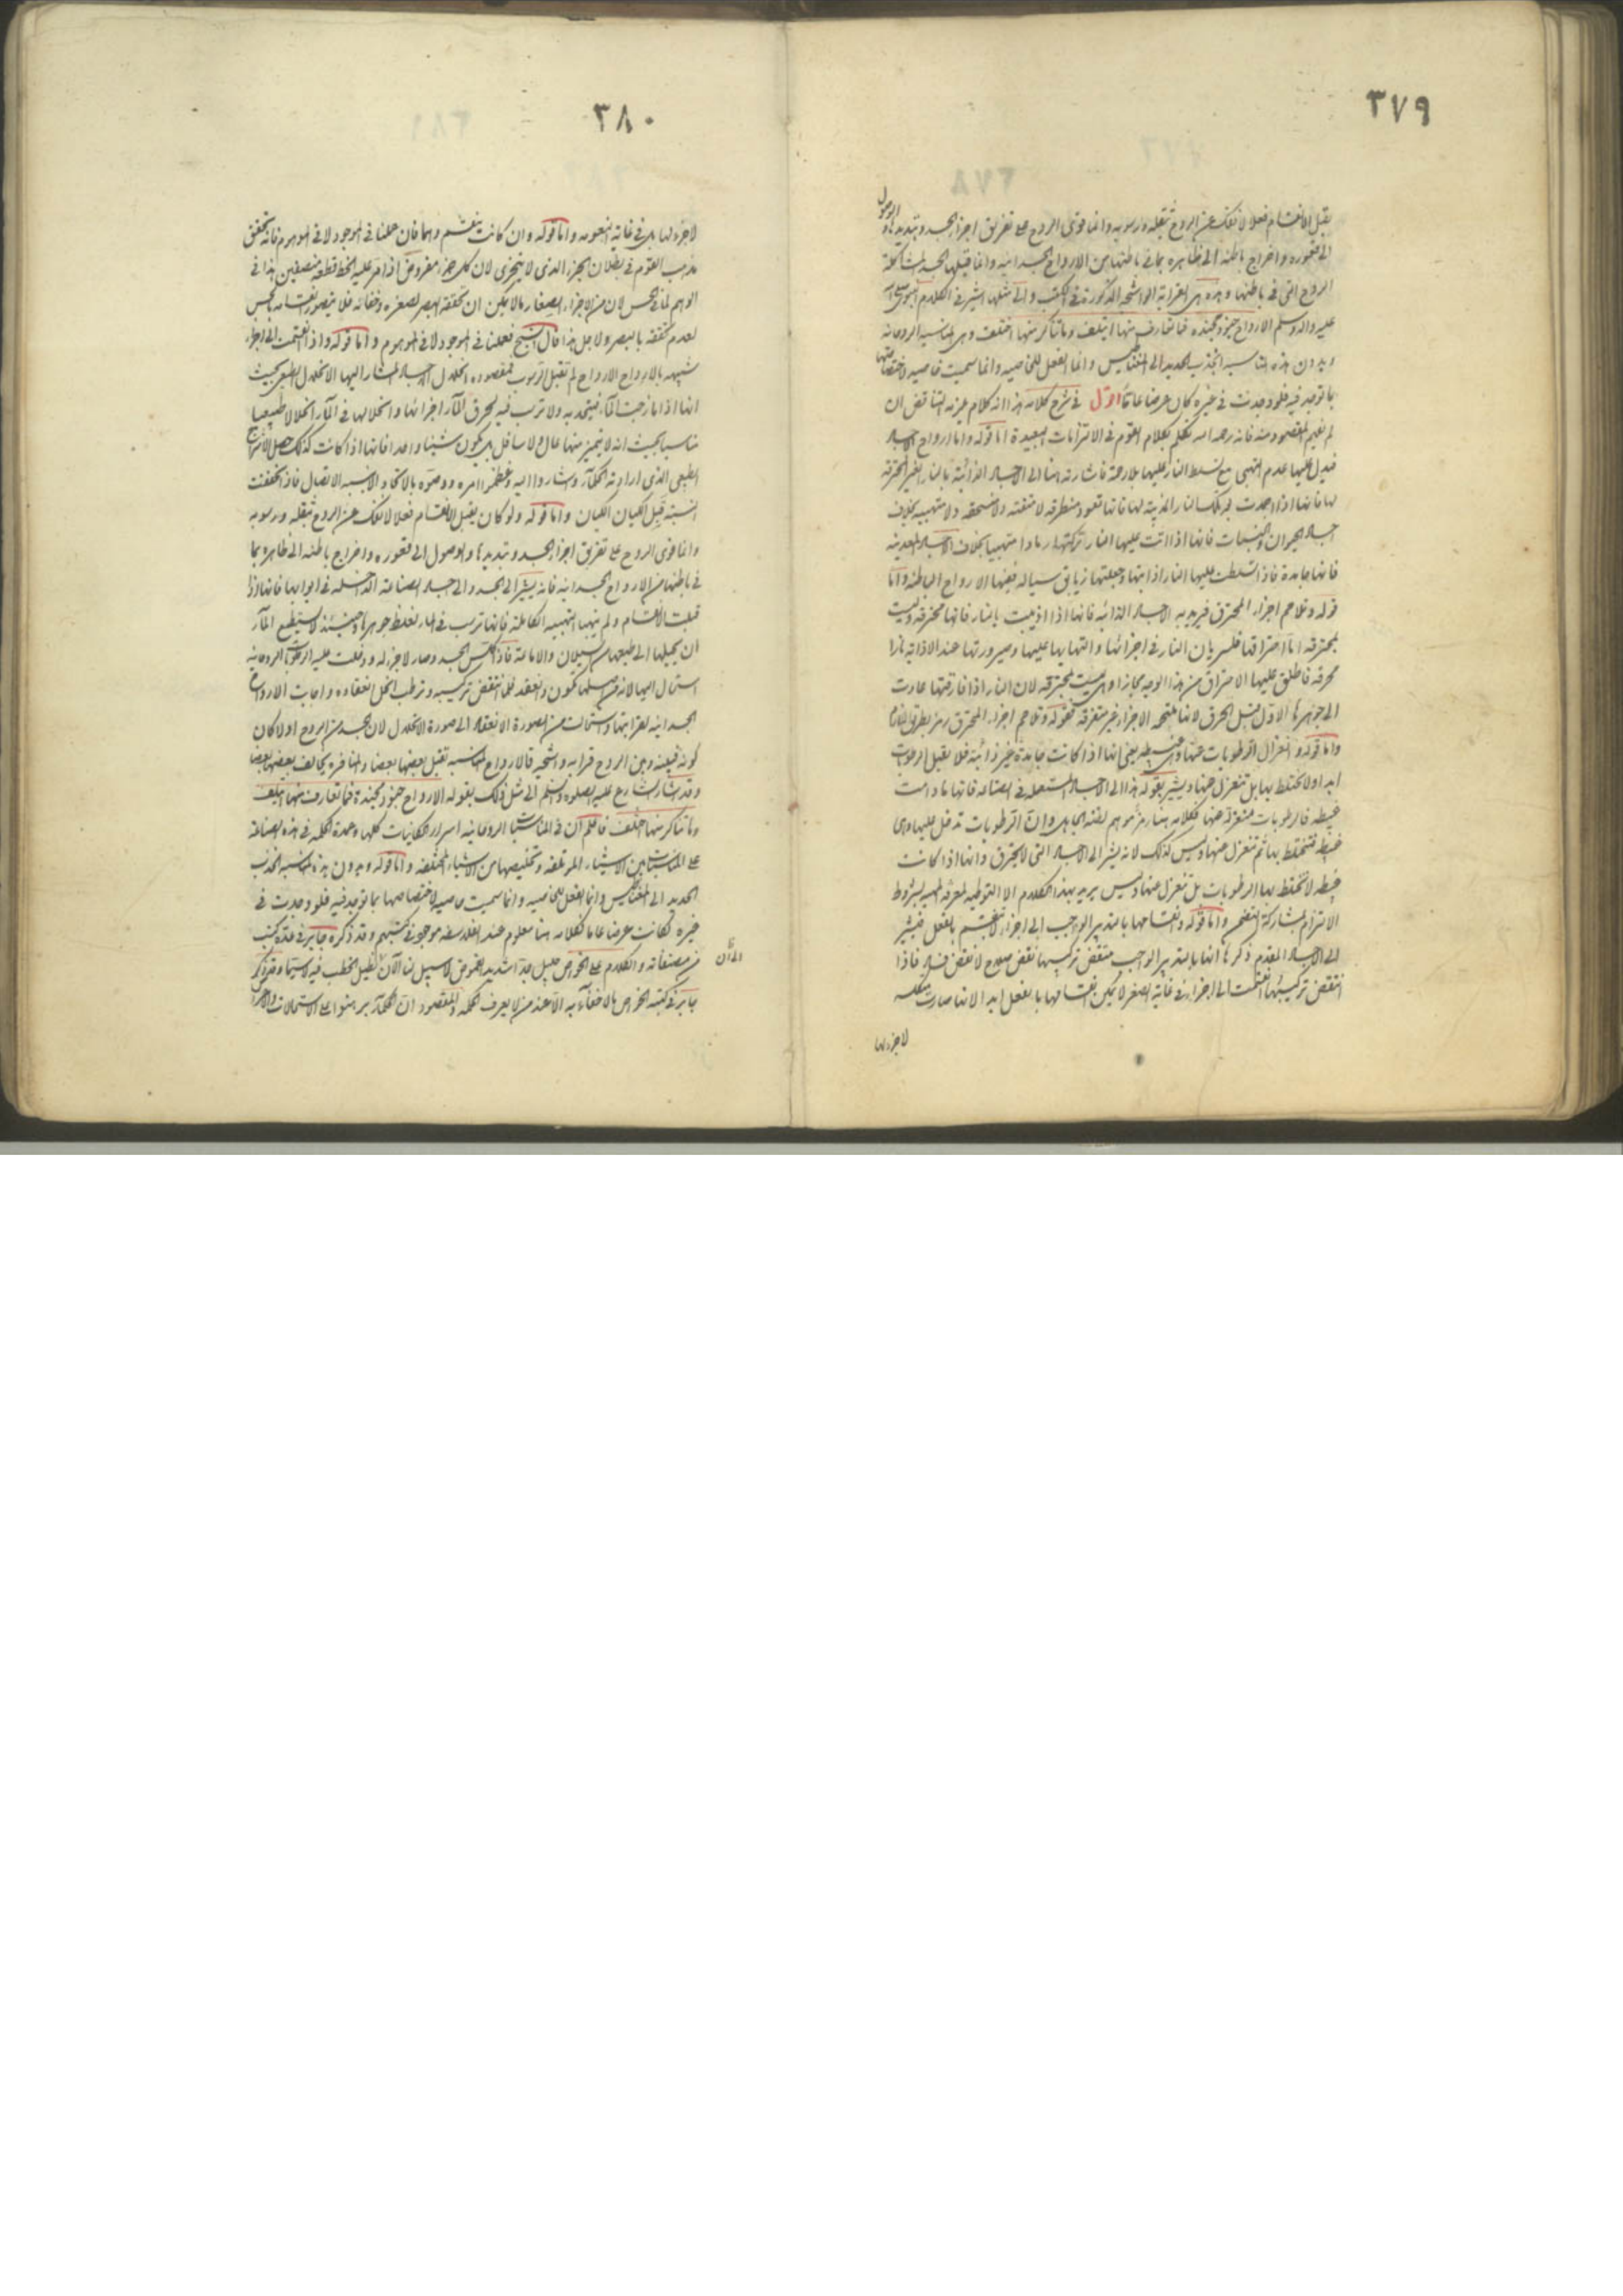 ٣٧٩
يقبل الانقسام فعلا لانفك عن الروح بثقله ورسوبه وانما قوى الروح على تفريق اجزاء الجسد وتبديدها والوصول
الى قعوره واخراج باطنه الى ظاهره بما فى باطنها من الارواح الجسدانيه وانما قبلها الجسد لمشاكلة
الروح التى فى باطنها وهذه هى القرابة الواشجه المذكورة فى الكتب والى مثلها اشير فى الكلام النبوى صلى الله
عليه واله وسلم الارواح جنود مجنده فما تعارف منها ايتلف وما تناكر منها اختلف وهى المناسبه الروحانيه
وبدون هذه المناسبه انجذب الحديد الى المغناطيس وانما الفعل للخاصيه وانما سميت خاصيه لاختصاصها
بما توجد فيه فلو وجدت فى غيره كان عرضا عاما اقول فى شرح كلامه هذا انه كلام عزيز لتناقض ان
لم نفهم المقصود منه فانه رحمه الله تكلم بكلام القوم فى الالتزامات البعيدة اما قوله واما ارواح الاجساد
فيدل عليها عدم التهبى مع تسلط النار عليها بلا رحمة فاشارته هنا الى الاجساد الذائبة بالنار الغير المحترقة
لها فانها اذا جمدت بعد تلك النار المذيبة لها فانها تعود منطرقة لا متفتته ولا منسحقه ولا متهبيه بخلاف
اجساد الحيوان والنبات فانها اذا اتت عليها النار تركتها رمادا متهبيا بخلاف الاجساد المعدنيه
فانها جامدة فاذا تسلطت عليها النار اذابتها وجعلتها زيابق سياله ففيها الارواح الباطنه واما
قوله وتلاحم اجزاء المحترق فيريد به الاجساد الذائبه فانها اذا اذيبت بالنار فانها محترقه وليست
بمحترقة اما احتراقها فلسريان النار فى اجزائها والتهابها عليها وصيرورتها عند الاذابه نارا
محرقه فاطلق عليها الاحتراق من هذا الوجه مجازا وهى ليست بمحترقه لان النار اذا فارقتها عادت
الى جوهرها الاول قبل الحرق لانها ملتحمة الاجزاء غير متفرقة فقوله وتلاحم اجزاء المحترق رمز بطريق الالتزام
واما قوله وانعزال الرطوبات عنها وهى عبيطه يعنى انها اذا كانت جامدة غير ذائبة فلا يقبل الرطوبات
ابدا ولا تختلط بها بل تنعزل عنها ويشير بقوله هذا الى الاجساد المستعمله فى الصناعه فانها ما دامت
عبيطه فالرطوبات منعزله عنها فكلامه هنا رمز موهم لفتنة الجاهل وان الرطوبات تدخل عليها وهى
عبيطه فتختلط بها ثم تنعزل عنها وليس كذلك لانه يشير الى الاجساد التى لا تحترق وانها اذا كانت
عبيطه لا تختلط بها الرطوبات بل تنعزل عنها وليس يريد بهذا الكلام الا التوطيه لمعرفة الجسد بشروط
الالتزام لمشاركة التضمن واما قوله وانقسامها بالتدبير الواجب الى اجزاء تنقسم بالفعل فيشير
الى الاجساد المقدم ذكرها انها بالتدبير الواجب منتقض تركيبها نقض صلاح لا نقض فساد فاذا
انتقض تركيبها انقسمت الى اجزاء فى غاية الصغر لا يمكن انقسامها بالفعل ابدا لانها صارت كلسه
لا جزء لها
٣٨٠
لا جزء لها بل فى غاية النعومه واما قوله وان كانت ينقسم وهما فان عملنا فى الموجود لا فى الموهوم فانه تحقق
مذهب القوم فى بطلان الجزء الذى لا يتجزى لان كل جزء مفروض اذا مر عليه الخط قطعه منصفين هذا فى
الوهم لا فى الحس لان من الاجزاء الصغار ما لا يمكن ان تحققه البصر لصغره وخفائه فلا يتصور انقسامه بالحس
لعدم تحققه بالبصر ولاجل هذا قال الشيخ فعملنا فى الموجود لا فى الموهوم واما قوله واذا انقسمت الى اجزاء
شبيهه بالارواح الارواح لم تقبل الرسوب فمقصوده انحلال الاجساد المشار اليها الانحلال الطبيعى بحيث
انها اذا مازجت الماء فيتحد به ولا ترسب فيه لتحرق الماء اجزائها وانحلالها فى الماء انحلالا طبيعيا
مناسبا بحيث انه لا يتميز منها عال ولا سافل بل يكون شيئا واحدا فانها اذا كانت كذلك حصل الامتزاج
الطبيعى الذى ارادته الحكماء واشاروا اليه وعظموا امره ووصوه بالاتحاد والانسبه الاتصال فاذا تحققت
النسبة قبل الكيان الكيان واما قوله ولو كان يقبل الانقسام فعلا لانفك عن الروح بثقله ورسوبه
وانما قوى الروح على تفريق اجزاء الجسد وتبديدها والوصول الى قعوره واخراج باطنه الى ظاهره بما
فى باطنها من الارواح الجسدانيه فانه يشير الى الجسد والى اجساد الصناعة الداخلة فى ابوابها فانها اذا
قبلت الانقسام ولم يتهبا التهبيه الكاملة فانها ترسب فى الماء لغلظ جوهرها وحينئذ لا يستطيع الماء
ان يحيلها الى طبعها من السيلان والامالة فاذا تكلس الجسد وصار لا جزء له ودخلت عليه الرطوبات الروحانيه
استحال اليها لانه من اصلها تكون وانعقد فلما انتقض تركيبه وترطب انحل انعقاده واجابت الارواح
الجسدانيه لقرابتها واستحالت من الصورة الانعقاد الى صورة الانحلال لان الجسد من الروح اولا كان
كونه فبينه وبين الروح قرابه واشجه فالارواح المناسبه تقبل بعضها بعضا والمتنافره يخالف بعضها بعضا
وقد اشار الشارع عليه الصلوة والسلم الى مثل ذلك بقوله الارواح جنود مجندة فما تعارف منها ايتلف
وما تناكر منها اختلف فاعلم ان فى المناسبات الروحانيه اسرار الكائنات كلها وعمدة الحكمه فى هذه الصناعة
على المناسبات بين الاشياء المؤتلفه وتخليصها من الاشياء المختلفه واما قوله وبدون هذه المناسبه انجذب
الحديد الى المغناطيس وانما الفعل للخاصيه وانما سميت خاصيه لاختصاصها بما توجد فيه فلو وجدت فى
غيره لكانت عرضا عاما فكلامه هنا معلوم عند الفلاسفه موجود فى كتبهم وقد ذكره جابر فى عدة كتب
من مصنفاته والكلام على الخواص جليل جدا شديد الغموض لا سبيل لنا الآن ان نطيل الخطب فيه لا سيما وقد ذكر
الى الان
جابر فى كتبه الخواص ما لا خفاء به الا عند من لا يعرف الحكمه والمقصود ان الحكماء برهنوا على الاستحالات